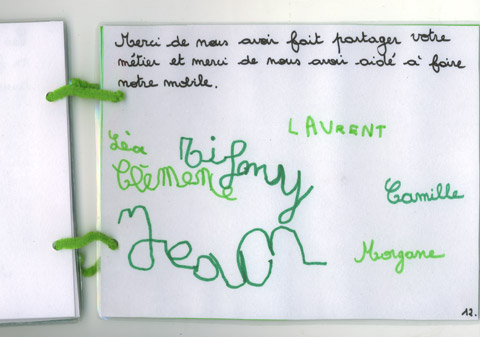 Merci de nous avoir fait partager votre
métier et merci de nous avoir aidé à faire
notre mobile.
LAURENT
Léa
Tifany
Clémence
Camille
Jean
Morgane
12.